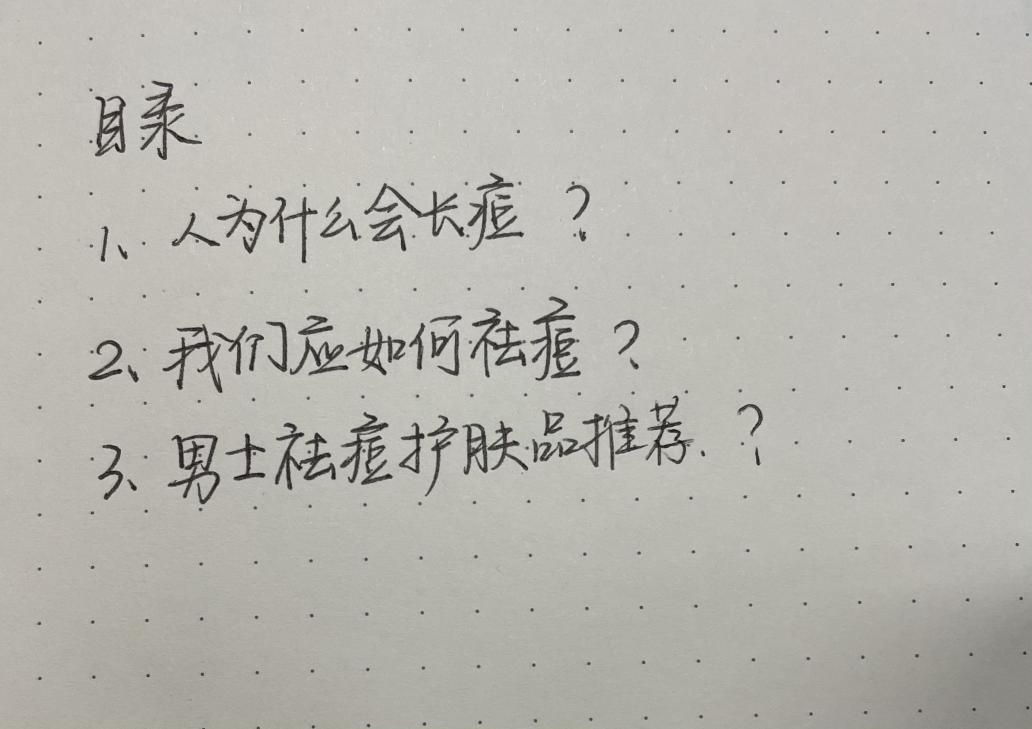 目录
1、人为什么会长痘？
2、我们应如何祛痘？
3、男士祛痘护肤品推荐.？